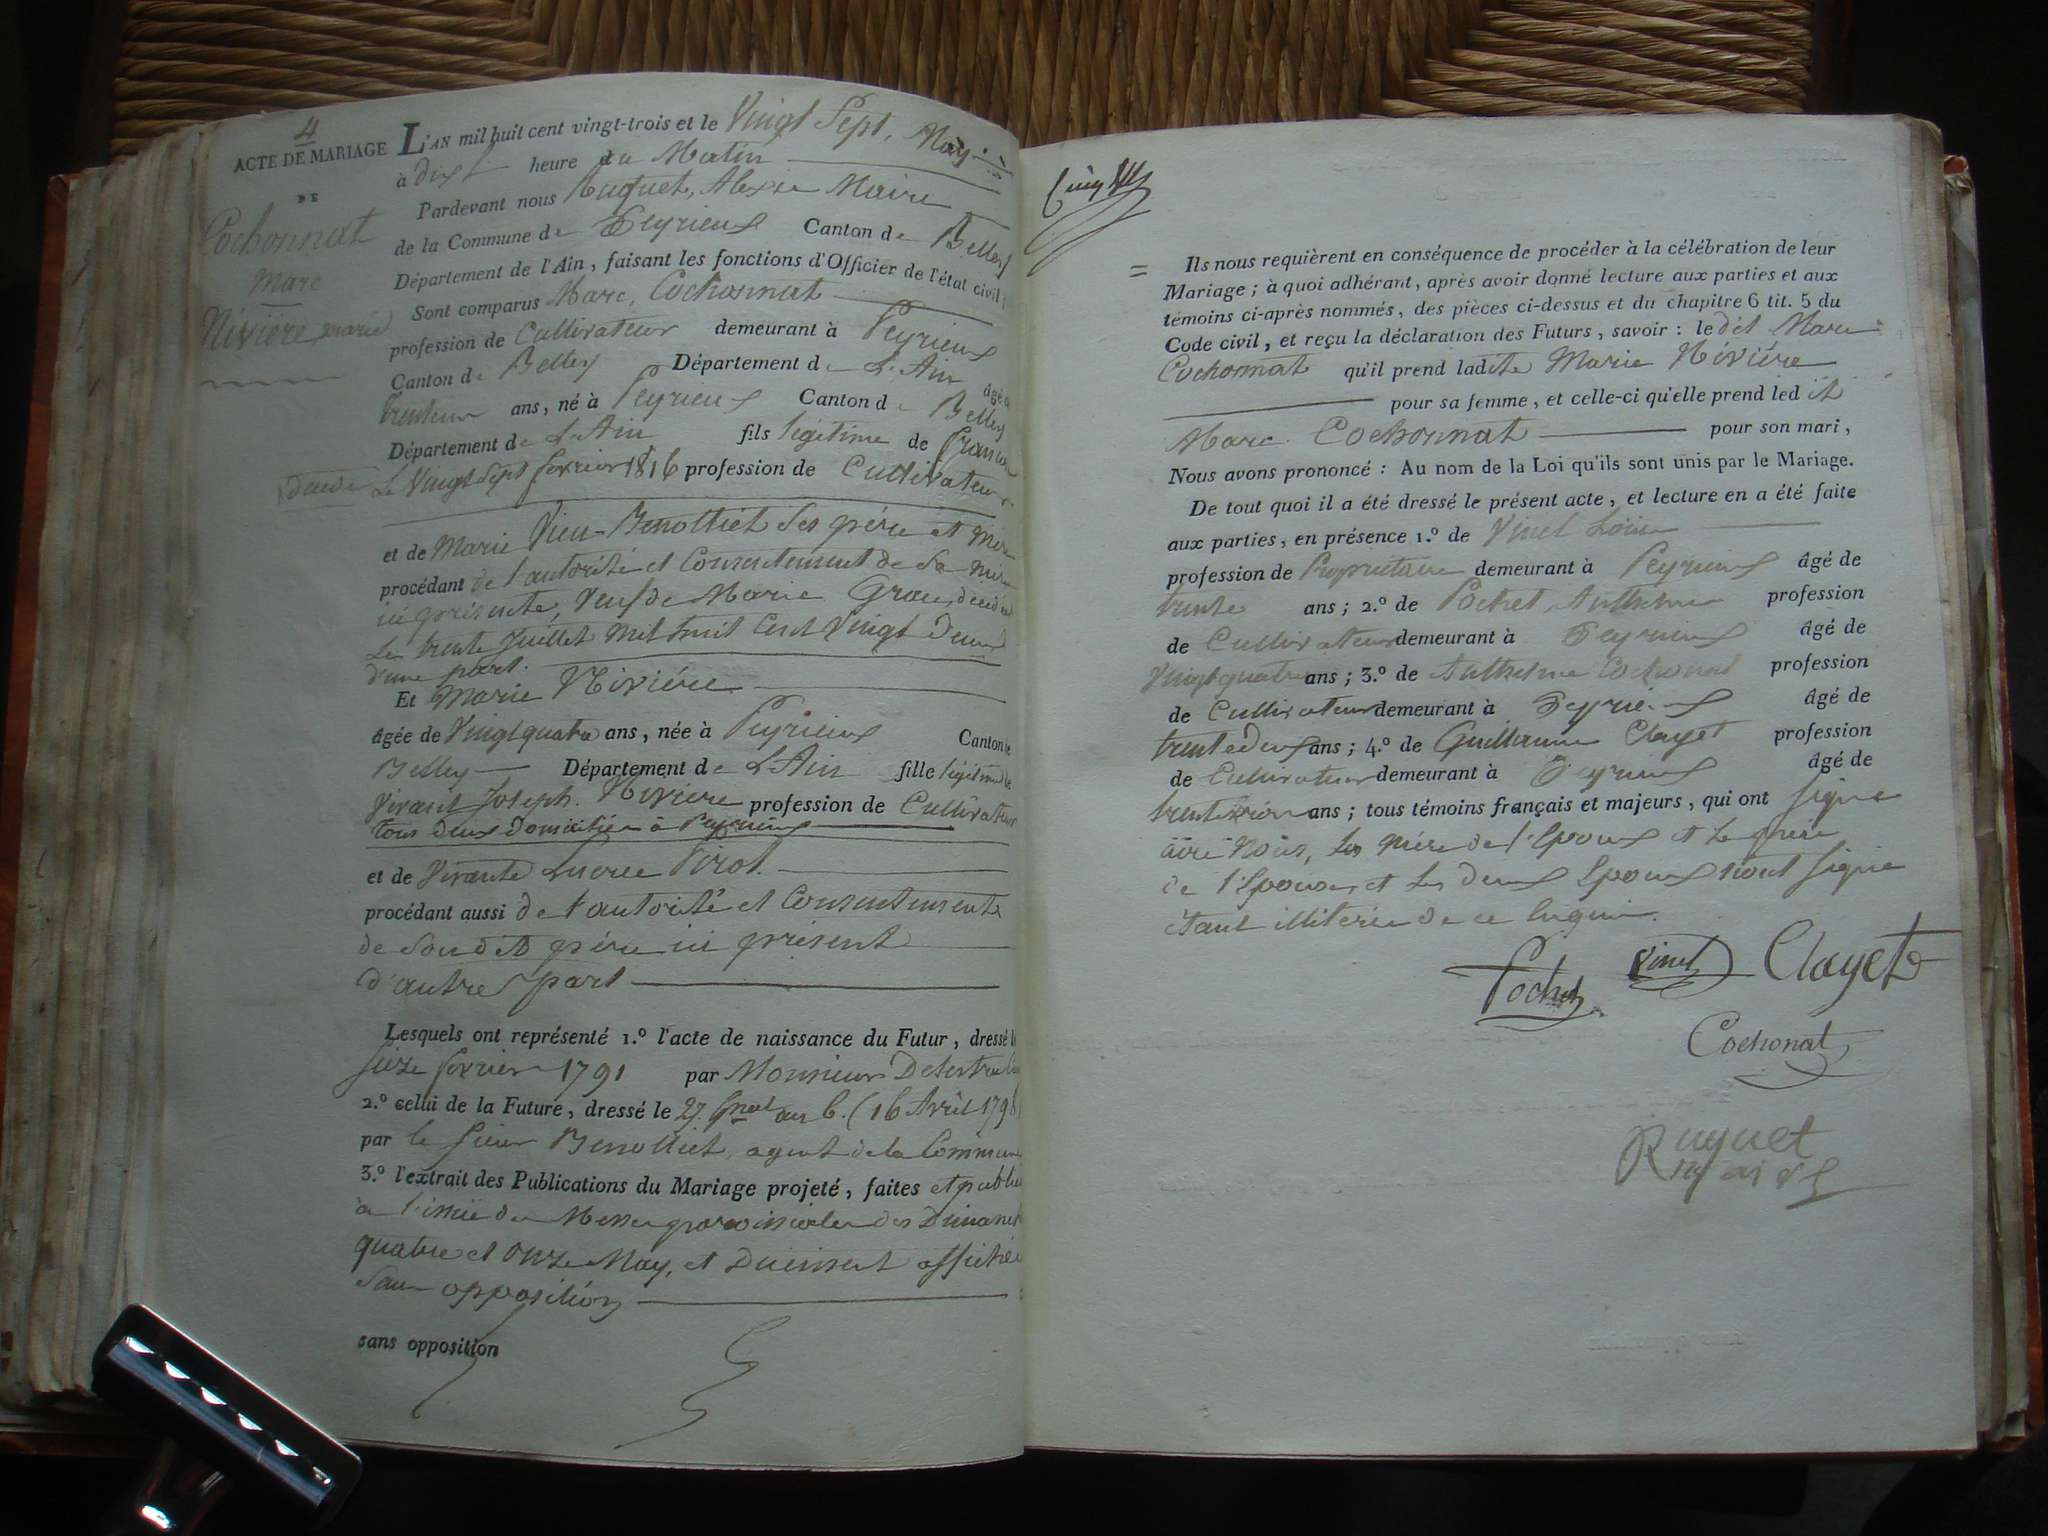 4
ACTE DE MARIAGE
DE
Cochonnat
Marc
Nivière marie
L'AN mil huit cent vingt-trois et le Vingt Sept, May
à dix heure du Matin
Pardevant nous Ruquet, Alexis Maire
de la Commune de Peyrieux Canton de Belley
Département de l'Ain, faisant les fonctions d'Officier de l'état civil;
Sont comparus Marc, Cochonnat
profession de Cultivateur demeurant à Peyrieux
Canton de Belley Département de L'Ain âgé de
trente ans, né à Peyrieux Canton de Belley
Département de L'Ain fils légitime de
décédé Le Vingt Sept février 1816 profession de Cultivateur
et de Marie Vieu-Benottiet Ses père et mère
procédant de l'autorité et Consentement de Sa mère
ici présente, Veuf de Marie décédée
Le trente Juillet Mil huit Cent Vingt Deux
d'une part.
Et Marie Nivière
âgée de Vingt quatre ans, née à Peyrieux Canton de
Belley Département de L'Ain fille légitime de
Vivant Joseph. Nivière profession de Cultivateur
tous deux domiciliés à Peyrieux
et de Vivante Pirot.
procédant aussi de l'autorité et Consentement
de Son dit père ici présent
d'autre part
Lesquels ont représenté 1.º l'acte de naissance du Futur, dressé le
Seize février 1791 par Monsieur
2.º celui de la Future, dressé le 27. an 6. (16 Avril 1798)
par le Sieur Benottiet, agent de la Commune
3.º l'extrait des Publications du Mariage projeté, faites et publiées
à l'issue des Messes paroissiales des Dimanches
quatre et onze May, et Duement affichées
Sans opposition
sans opposition
Ils nous requièrent en conséquence de procéder à la célébration de leur
Mariage; à quoi adhérant, après avoir donné lecture aux parties et aux
témoins ci-après nommés, des pièces ci-dessus et du chapitre 6 tit. 5 du
Code civil, et reçu la déclaration des Futurs, savoir: le dit Marc
Cochonnat qu'il prend ladite Marie Nivière
pour sa femme, et celle-ci qu'elle prend ledit
Marc. Cochonnat pour son mari,
Nous avons prononcé: Au nom de la Loi qu'ils sont unis par le Mariage.
De tout quoi il a été dressé le présent acte, et lecture en a été faite
aux parties, en présence 1.º de Vinet Louis
profession de Propriétaire demeurant à Peyrieux âgé de
trente ans; 2.º de Pochet, Anthelme profession
de Cultivateur demeurant à Peyrieux âgé de
Vingt quatre ans; 3.º de Anthelme Cochonat profession
de Cultivateur demeurant à Peyrieux âgé de
trente deux ans; 4.º de Guillaume Clayet profession
de Cultivateur demeurant à Peyrieux âgé de
trente ans; tous témoins français et majeurs, qui ont Signé
avec Nous, La Mère de l'Epoux et Le père
de l'Epouse, et Les deux Epoux n'ont Signé
étant illitérés de ce Enquis.
Pochet Vinet Clayet
Cochonat
Ruquet
maire